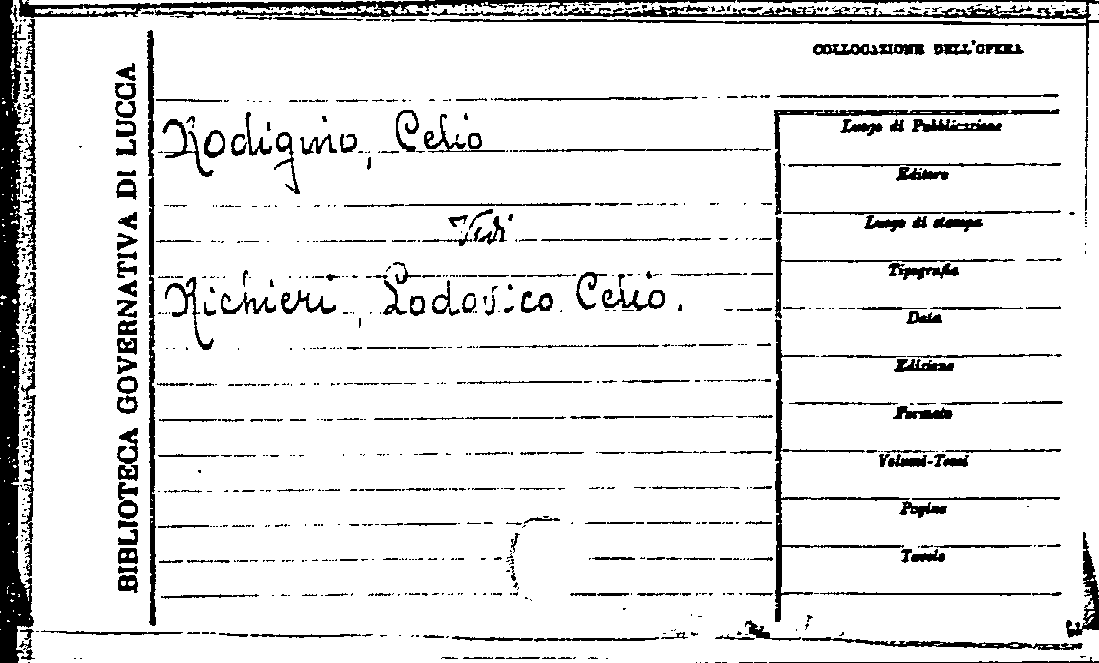 COLLOCAZIONE DELL'OPERA
BIBLIOTECA GOVERNATIVA DI LUCCA
Rodigino, Celio
Vedi
Richieri, Lodovico Celio.
Luogo di Pubblicazione
Editore
Luogo di stampa
Tipografia
Data
Edizione
Formato
Volumi-Tomi
Pagine
Tavole